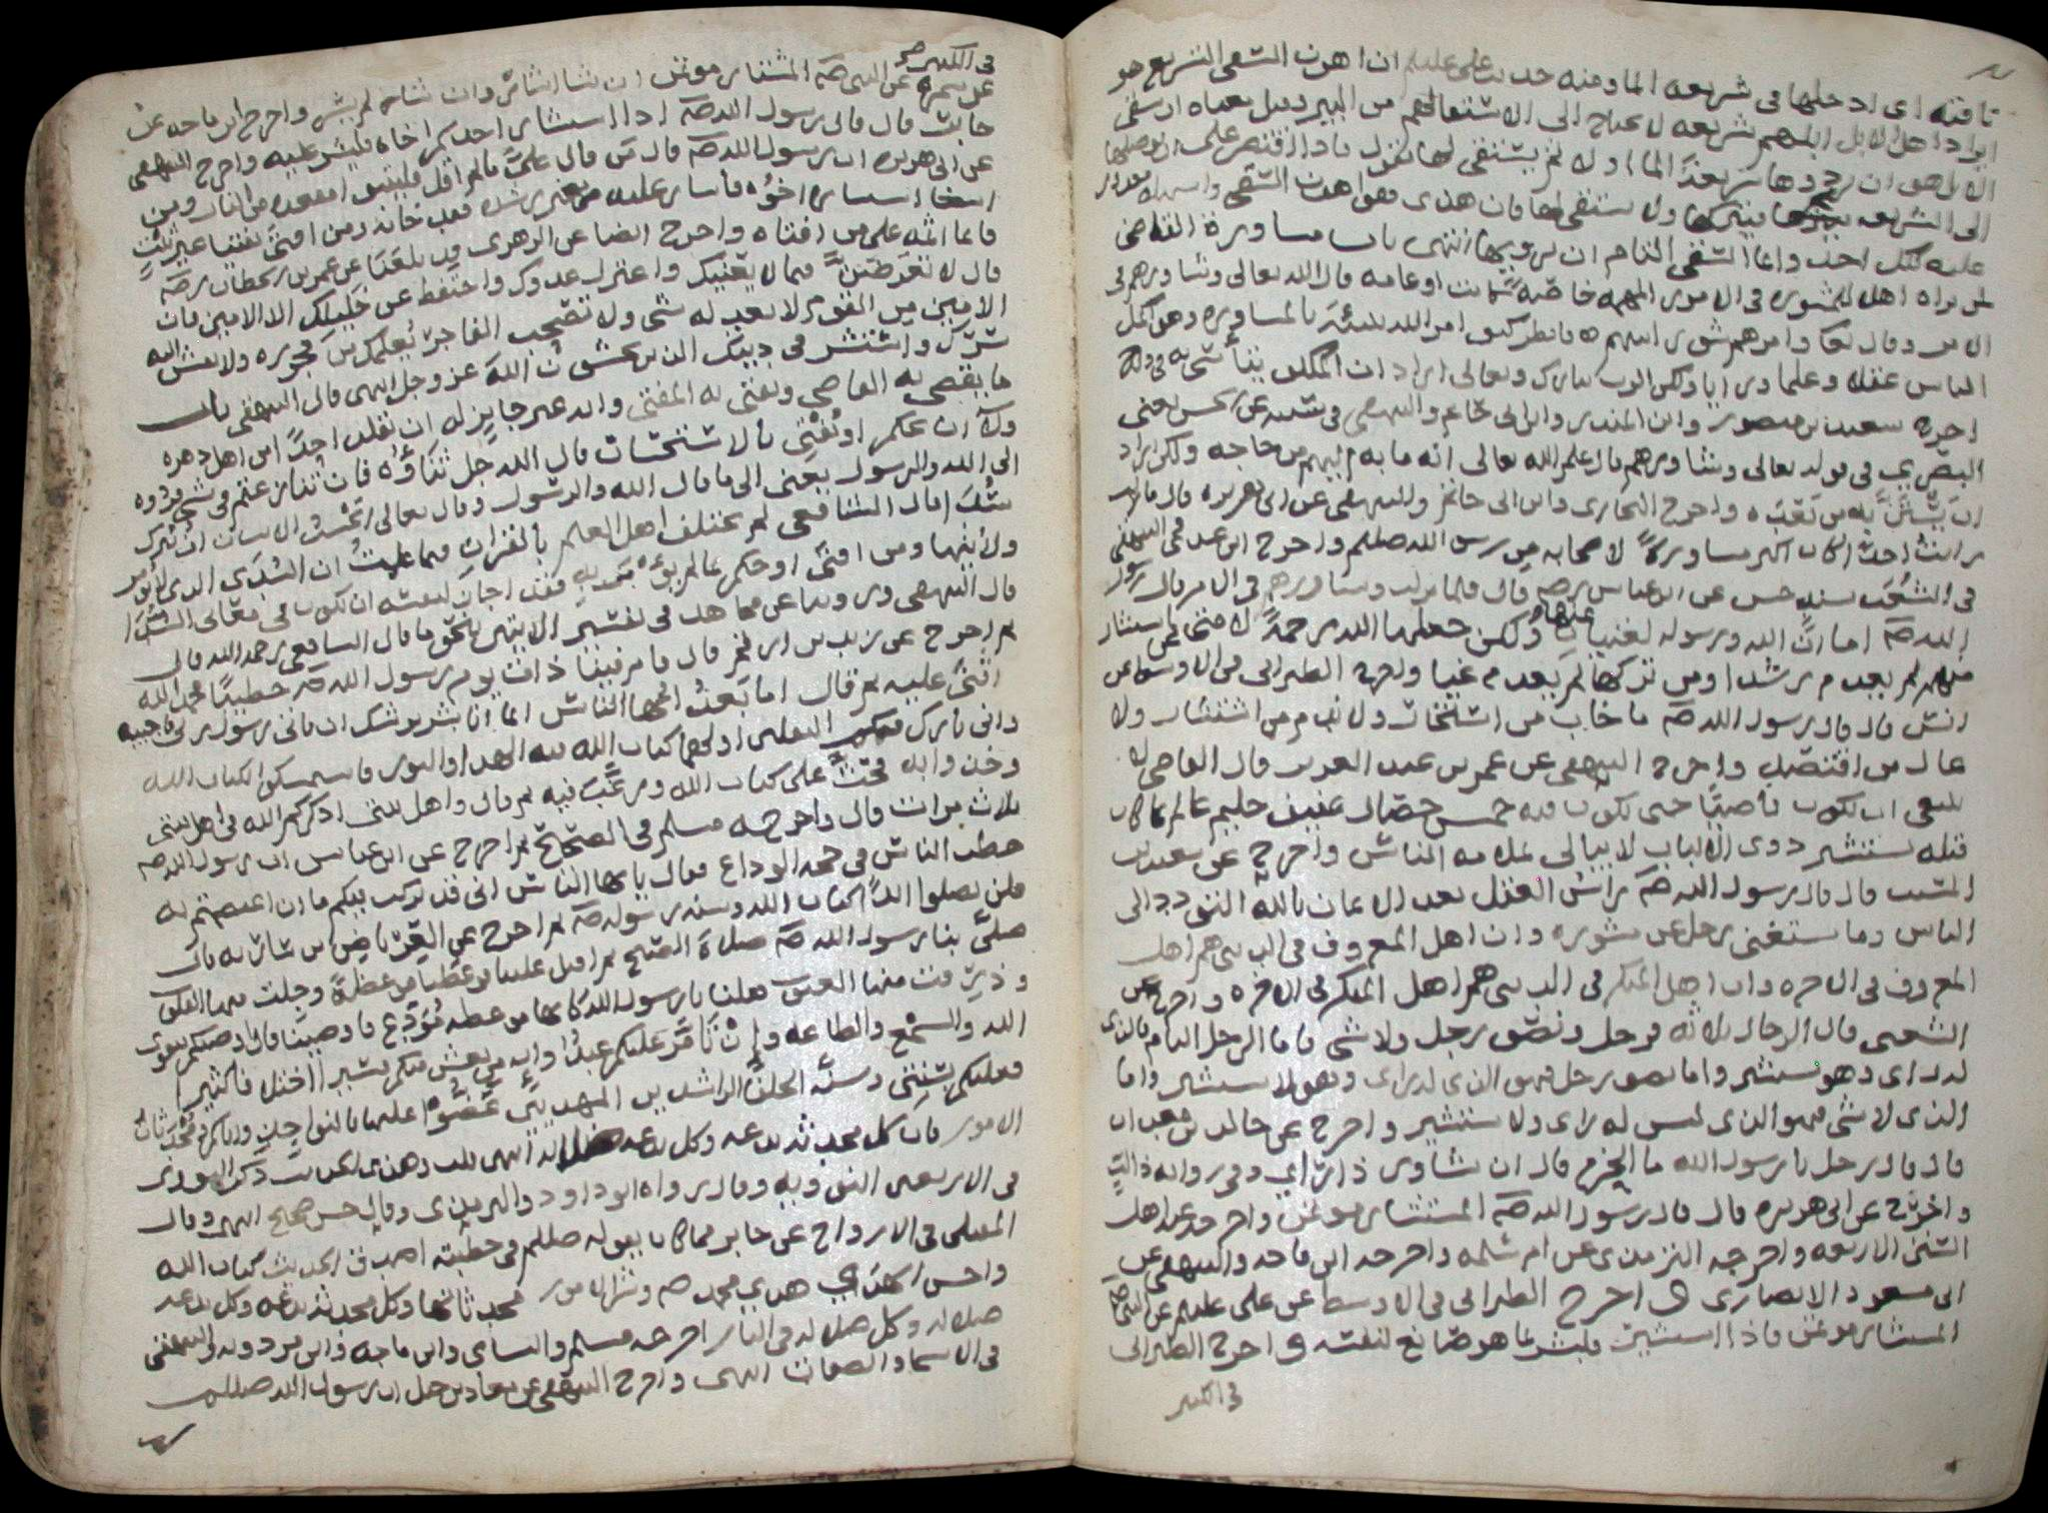 ناقته اى ادخلها فى شريعه الما ومنه حديث على عليلم ان اهون السقى التشريع هو
ايراد اهل الابل ابلهم شريعه لا يحتاج الى الاستقا لهم من البير وقيل معناه ان سقى
الابل هو ان ترد بها شريعة الما اولا ثم يستقى لها يقول فاذا اقتصر على ان يوصلها
الى الشريعه فيتركها ولا يستقى لها فان هذا هو اهون السقى واسهله مقدور
عليه لكل احد وانما السقى التام ان يرويها انتهى باب مشاورة القاضى
لمن يراه اهل المشوره فى الامور المهمه خاصة كانت او عامه قال الله تعالى وشاورهم فى
الامر وقال تعا وامرهم شورى بينهم فانظر كيف امر الله نبيه بالمشاوره وهو اكمل
الناس عقلا وعلما ورايا ولكن الرب تبارك وتعالى اراد ان المكلف يتأسى به فى ذلك
اخرج سعيد بن منصور وابن المنذر وابن ابى حاتم والبيهقى فى سننه عن الحسن يعنى
البصرى فى قوله تعالى وشاورهم قال علم الله تعالى انه ما به اليهم من حاجه ولكن اراد
ان يستن به من بعده واخرج البخارى وابن ابى حاتم والبيهقى عن ابى هريره قال ما
رايت احدا كان اكثر مشاورة لاصحابه من رسول الله صللم واخرج ابن عدى والبيهقى
فى الشعب بسند حسن عن ابن عباس رضه قال لما نزلت وشاورهم فى الامر قال رسول
الله صه اما ان الله ورسوله لغنيان عنها ولكن جعلها الله رحمة لامتى فمن استشار
منهم لم يعدم رشدا ومن تركها لم يعدم غيا واخرج الطبرانى فى الاوسط عن
انس قال قال رسول الله صه ما خاب من استخار ولا ندم من استشار ولا
عال من اقتصد واخرج البيهقى عن عمر بن عبد العزيز قال القاضى لا
ينبغى ان يكون قاضيا حتى يكون فيه خمس خصال عفيف حليم عالم بما كان
قبله يستشير ذوى الالباب لا يبالى بملامه الناس واخرج عن سعيد بن
المسيب قال قال رسول الله صه راس العقل بعد الايمان بالله التودد الى
الناس وما يستغنى رجل عن مشوره وان اهل المعروف فى الدنيا هم اهل
المعروف فى الاخره وان اهل المنكر فى الدنيا هم اهل المنكر فى الاخره واخرج عن
الشعبى قال الرجال ثلاثه فرجل ونصف رجل ولا شى فاما الرجل التام فالذى
له راى وهو يستشير واما نصف رجل فهو الذى له راى وهو لا يستشير واما
الذى لا شى فهو الذى ليس له راى ولا يستشير واخرج عن خالد بن معدان
قال قال رجل يا رسول الله ما الحزم قال ان تشاور ذا راى وفى روايه ذا لب
واخرج عن ابى هريره قال قال رسول الله صه المستشار مؤتمن واخرجه اهل
السنن الاربعه واخرجه الترمذى عن ام سلمه واخرجه ابن ماجه والبيهقى عن
ابى مسعود الانصارى واخرج الطبرانى فى الاوسط عن على عليلم عن النبى صه
المستشار مؤتمن فاذا استشير فليشر بما هو صانع لنفسه واخرج الطبرانى
فى الكبير
فى الكبير
عن سمره عن النبى صه المستشار مؤتمن ان شا اشار وان شا لم يشر واخرج ابن ماجه عن
جابر قال قال رسول الله صه اذا استشار احدكم اخاه فليشر عليه واخرج البيهقى
عن ابى هريره ان رسول الله صه قال من قال على ما لم اقل فليتبوا مقعده من النار ومن
استشاره اخوه فاشار عليه بغير رشده فقد خانه ومن افتى بفتيا غير ثبت
فانما اثمه على من افتاه واخرج ايضا عن الزهرى قد بلغنا عن عمر بن الخطاب رضه
قال لا تعرضن فيما لا يعنيك واعتزل عدوك واحتفظ عن خليلك الا الامين فان
الامين من القوم لا يعدله شى ولا تصحب الفاجر يعلمك من فجوره ولا تفش اليه
سرك واستشر فى دينك الذين يخشون الله عز وجل انتهى قال البيهقى باب
ما يقضى به القاضى ويفتى به المفتى وانه غير جايز له ان يقلد احدا من اهل دهره
ولا ان يحكم او يفتى بالاستحسان قال الله جل ثناؤه فان تنازعتم فى شى فردوه
الى الله والرسول يعنى الى ما قال الله والرسول وقال تعالى ايحسب الانسان ان يترك
سدا قال الشافعى لم يختلف اهل العلم بالقران فيما علمت ان السدى الذى لا يؤمر
ولا ينهى ومن افتى او حكم بما لم يؤمر به فقد اجاز لنفسه ان يكون فى معانى السدا
قال البيهقى وروينا عن مجاهد فى تفسير الايتين بنحو ما قال الشافعى رحمه الله قال
ثم اخرج عن زيد بن ارقم قال قام فينا ذات يوم رسول الله صه خطيبا فحمد الله
واثنى عليه ثم قال اما بعد ايها الناس انما انا بشر يوشك ان ياتى رسول ربى فاجيبه
وانى تارك فيكم الثقلين اولهما كتاب الله فيه الهدا والنور فاستمسكوا بكتاب الله
وخذوا به فحث على كتاب الله ورغب فيه ثم قال واهل بيتى اذكركم الله فى اهل بيتى
ثلاث مرات قال واخرجه مسلم فى الصحيح ثم اخرج عن ابن عباس ان رسول الله صه
خطب الناس فى حجه الوداع فقال يا ايها الناس انى قد تركت فيكم ما ان اعتصمتم به
فلن تضلوا ابدا كتاب الله وسنه رسوله صه ثم اخرج عن العرباض بن ساريه قال
صلى بنا رسول الله صه صلاة الصبح ثم اقبل علينا فوعظنا موعظة وجلت منها القلوب
وذرفت منها العيون فقلنا يا رسول الله كانها موعظه مودع فاوصينا قال اوصيكم بتقوى
الله والسمع والطاعه وان تامر عليكم عبد وانه من يعش منكم يسير اختلافا كثيرا
فعليكم بسنتى وسنة الخلفا الراشدين المهديين عضوا عليها بالنواجذ واياكم ومحدثات
الامور فان كل محدثه بدعه وكل بدعه ضلاله انتهى قلت وهذا الحديث ذكره النووى
فى الاربعين النوويه وقال رواه ابو داود والترمذى وقال حسن صحيح انتهى وقال
المقبلى فى الارواح عن جابر مما كان يقوله صللم فى خطبته اصدق الحديث كتاب الله
واحسن الهدى هدى محمد صم وشر الامور محدثاتها وكل محدثه بدعه وكل بدعه
ضلاله وكل ضلاله فى النار اخرجه مسلم والنساى وابن ماجه وابن مردويه والبيهقى
فى الاسما والصفات انتهى واخرج البيهقى عن معاذ بن جبل ان رسول الله صللم